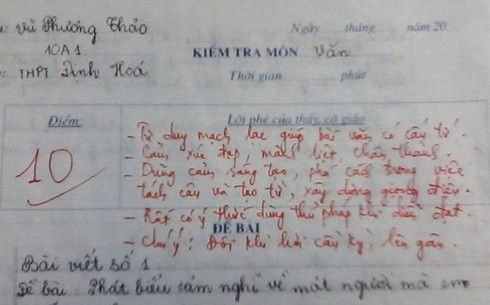 Vũ Phương Thảo
Ngày tháng năm 20
10A1
KIỂM TRA MÔN Văn
THPT Định Hoá
Thời gian phút
Điểm
Lời phê của thầy, cô giáo
10
- Tư duy mạch lạc giúp bài văn có cấu tứ.
- Cảm xúc đẹp, mãnh liệt chân thành.
- Dũng cảm sáng tạo, phá cách trong việc
tách câu và tạo từ, xây dựng giọng điệu.
- Rất có ý thức dùng thủ pháp khi diễn đạt.
- Chú ý: Đôi khi hơi cầu kỳ, lên gân.
ĐỀ BÀI
Bài viết số 1.
Đề bài: Phát biểu cảm nghĩ về một người mà em